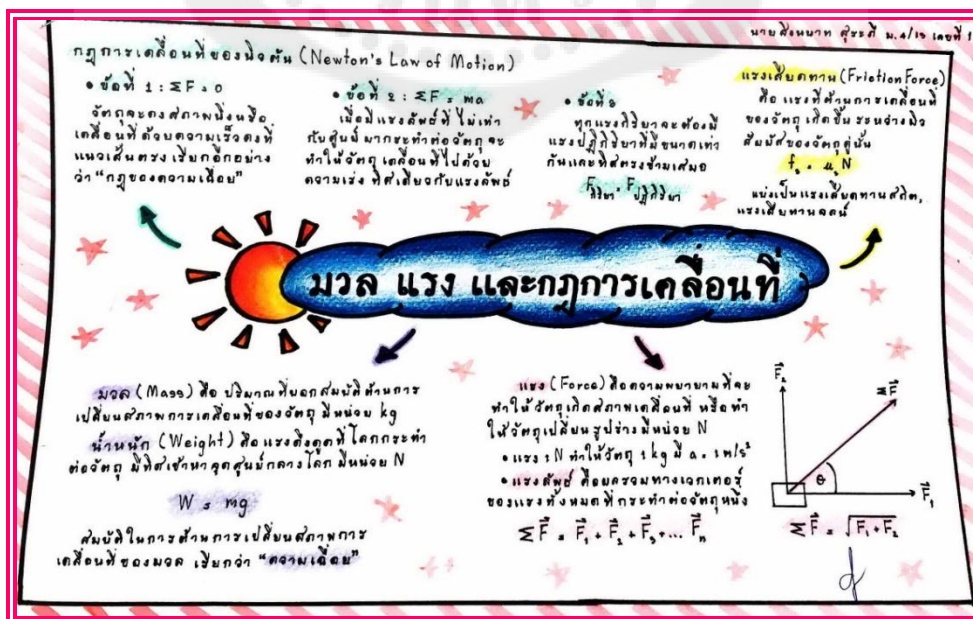 นายสิงหนาท สุระภี ม.4/13 เลขที่ 1
กฎการเคลื่อนที่ของนิวตัน (Newton's Law of Motion)
• ข้อที่ 1 : ΣF = 0
วัตถุจะคงสภาพนิ่งหรือ
เคลื่อนที่ด้วยความเร็วคงที่
แนวเส้นตรง เรียกอีกอย่าง
ว่า "กฎของความเฉื่อย"
• ข้อที่ 2 : ΣF = ma
เมื่อมีแรงลัพธ์ที่ไม่เท่า
กับศูนย์มากระทำต่อวัตถุจะ
ทำให้วัตถุเคลื่อนที่ไปด้วย
ความเร่ง ทิศเดียวกับแรงลัพธ์
• ข้อที่ 3
ทุกแรงกิริยาจะต้องมี
แรงปฏิกิริยาที่มีขนาดเท่า
กันและทิศตรงข้ามเสมอ
Fกิริยา = Fปฏิกิริยา
แรงเสียดทาน (Friction Force)
คือ แรงที่ต้านการเคลื่อนที่
ของวัตถุ เกิดขึ้นระหว่างผิว
สัมผัสของวัตถุคู่นั้น
fₛ = μₛN
แบ่งเป็นแรงเสียดทานสถิต,
แรงเสียทานจลน์
มวล แรง และกฎการเคลื่อนที่
มวล (Mass) คือ ปริมาณที่บอกสมบัติต้านการ
เปลี่ยนสภาพการเคลื่อนที่ของวัตถุ มีหน่วย kg
น้ำหนัก (Weight) คือแรงดึงดูดที่โลกกระทำ
ต่อวัตถุ มีทิศเข้าหาจุดศูนย์กลางโลก มีหน่วย N
W = mg
สมบัติในการต้านการเปลี่ยนสภาพการ
เคลื่อนที่ของมวล เรียกว่า "ความเฉื่อย"
แรง (Force) คือความพยายามที่จะ
ทำให้วัตถุเกิดสภาพเคลื่อนที่ หรือทำ
ให้วัตถุเปลี่ยนรูปร่างมีหน่วย N
• แรง 1N ทำให้วัตถุ 1kg มี a = 1m/s²
• แรงลัพธ์ คือผลรวมทางเวกเตอร์
ของแรงทั้งหมดที่กระทำต่อวัตถุหนึ่ง
ΣF⃗ = F⃗₁ + F⃗₂ + F⃗₃ +... F⃗ₙ
F⃗₂
ΣF⃗
θ
F⃗₁
ΣF⃗ = √F₁+F₂